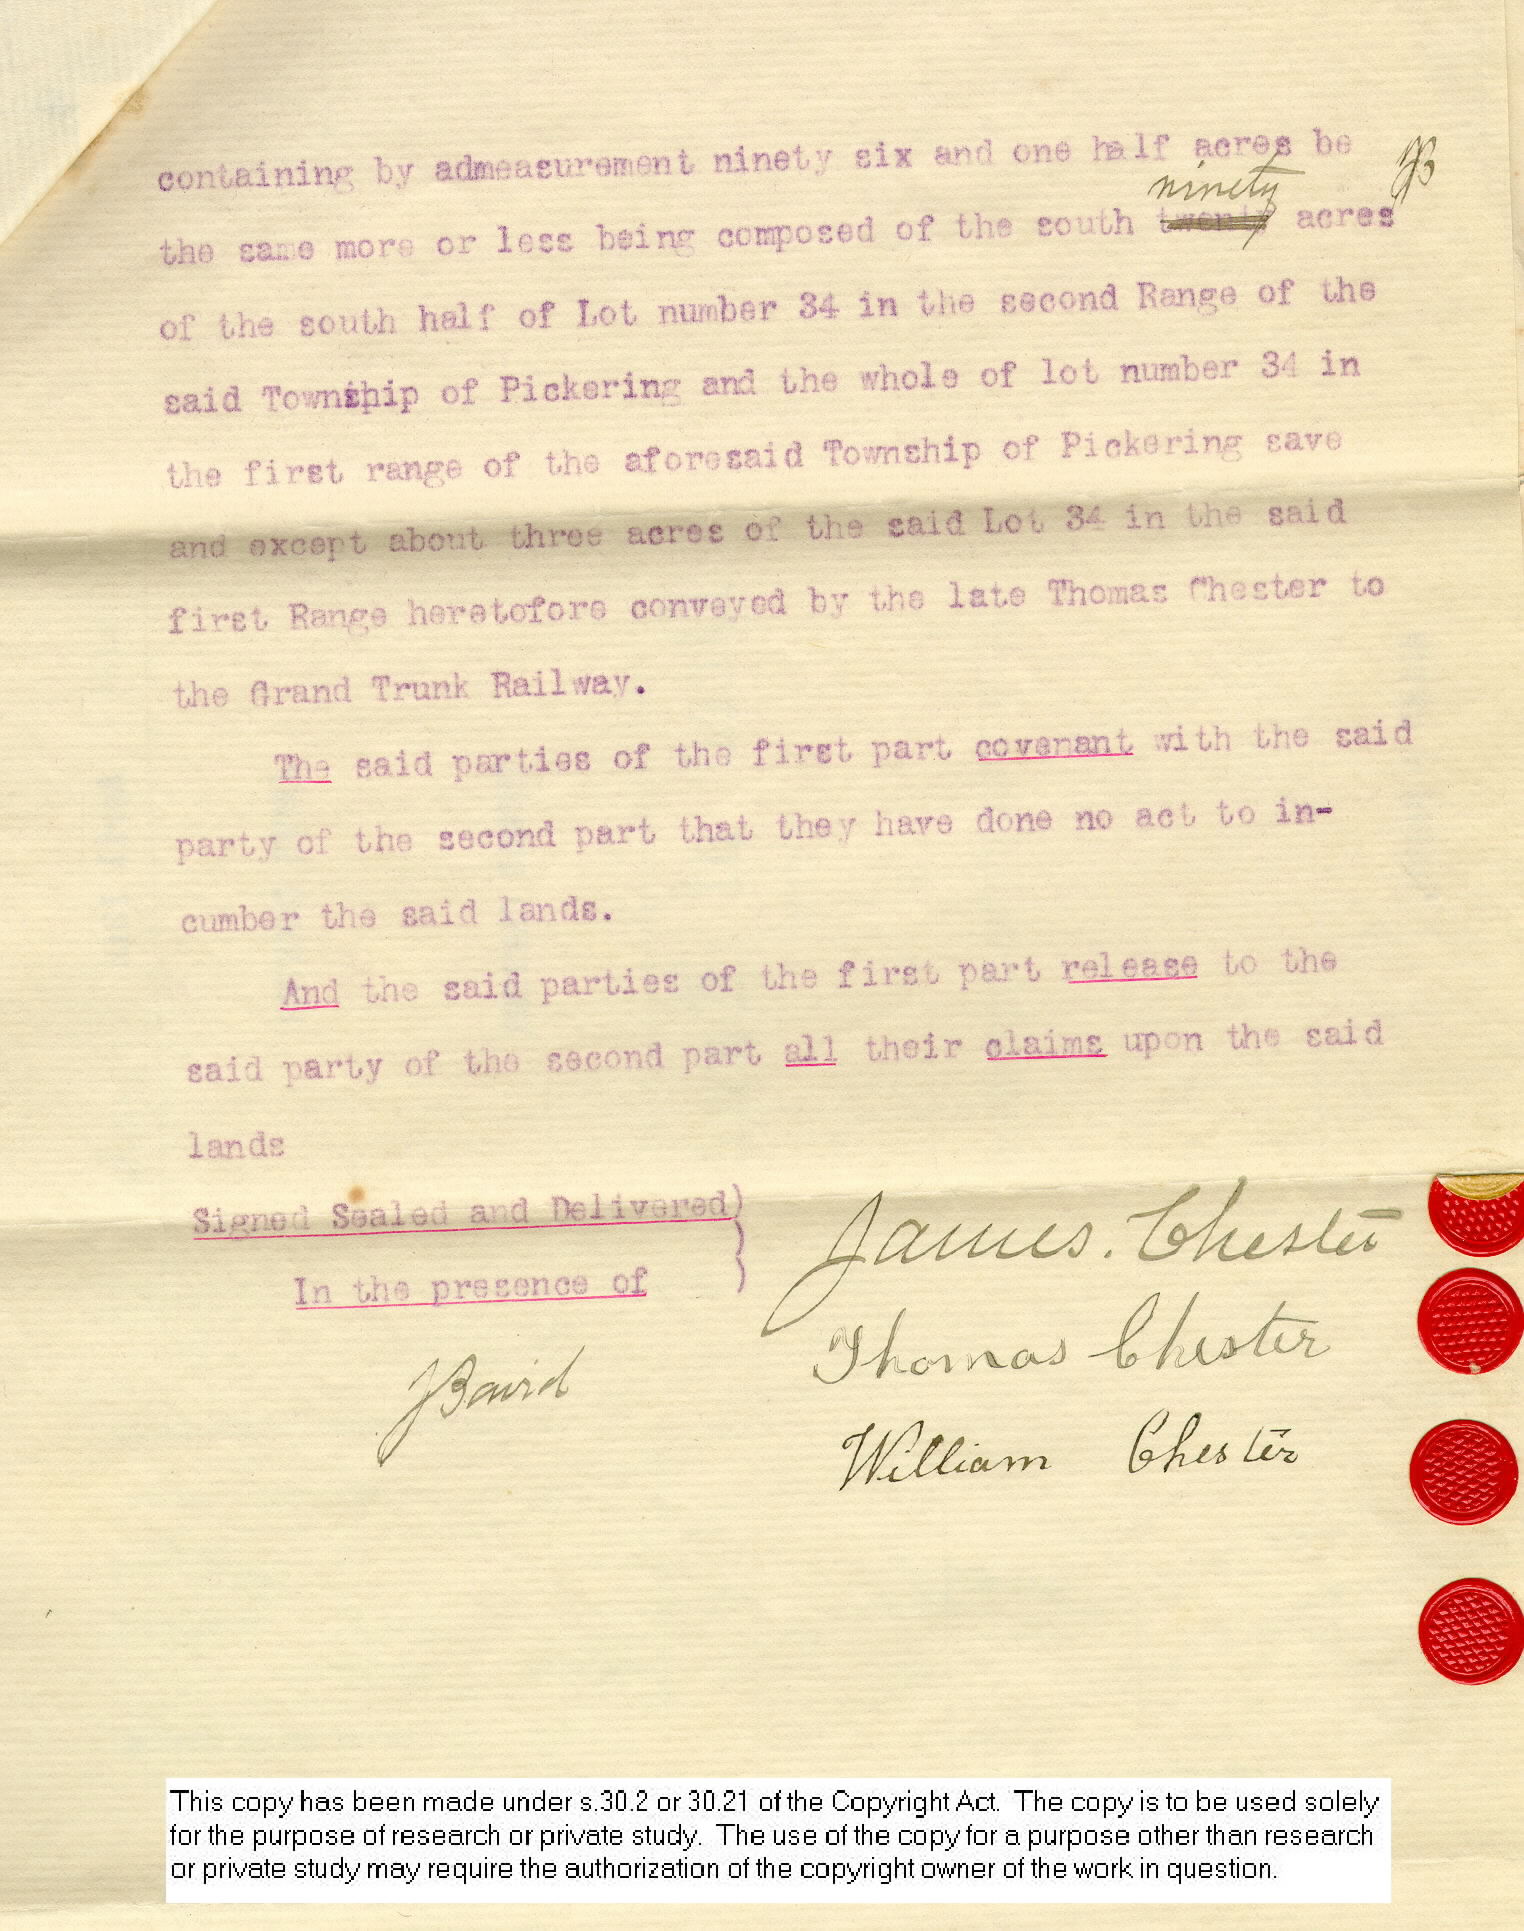 containing by admeasurement ninety six and one half acres be JB
ninety
the same more or less being composed of the south twenty acres
of the south half of Lot number 34 in the second Range of the
said Township of Pickering and the whole of lot number 34 in
the first range of the aforesaid Township of Pickering save
and except about three acres of the said Lot 34 in the said
first Range heretofore conveyed by the late Thomas Chester to
the Grand Trunk Railway.
The said parties of the first part covenant with the said
party of the second part that they have done no act to in-
cumber the said lands.
And the said parties of the first part release to the
said party of the second part all their claims upon the said
lands
Signed Sealed and Delivered)
In the presence of
James. Chester
Thomas Chester
JBaird
William Chester
This copy has been made under s.30.2 or 30.21 of the Copyright Act. The copy is to be used solely
for the purpose of research or private study. The use of the copy for a purpose other than research
or private study may require the authorization of the copyright owner of the work in question.